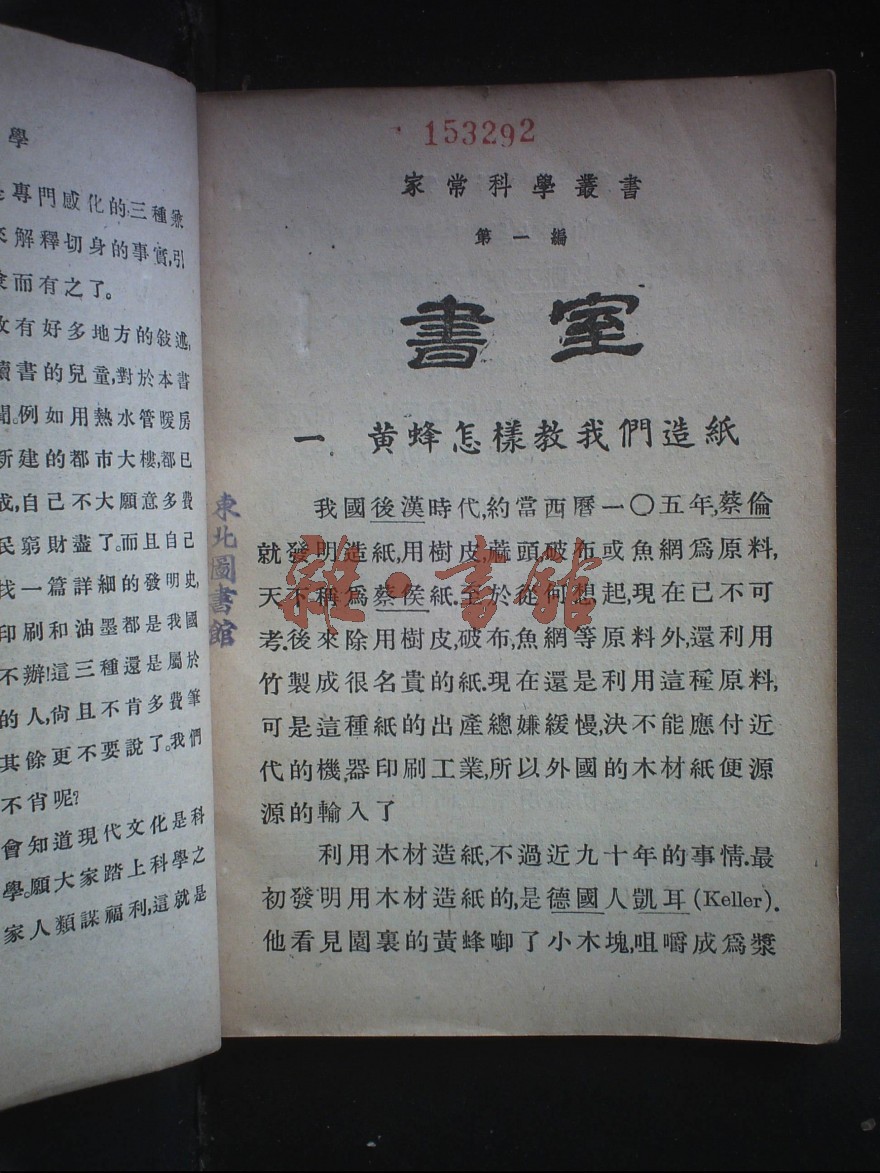 學
專門感化的三種
解釋切身的事實,引
而有之了。
有好多地方的敍述,
讀書的兒童,對於本書
例如用熱水管暖房
新建的都市大樓,都已
自己不大願意多費
民窮財盡了。而且自己
找一篇詳細的發明史,
印刷和油墨都是我國
不辦!這三種還是屬於
的人,尙且不肯多費筆
其餘更不要說了。我們
不肯呢?
會知道現代文化是科
學。願大家踏上科學之
家人類謀福利,這就是
東北圖書館
153292
家常科學叢書
第一編
書室
一 黃蜂怎樣教我們造紙
我國後漢時代,約當西曆一〇五年,蔡倫
就發明造紙,用樹皮,蔴頭破布或魚網爲原料,
天下稱爲蔡侯紙.至於從何想起,現在已不可
考.後來除用樹皮,破布,魚網等原料外,還利用
竹製成很名貴的紙.現在還是利用這種原料,
可是這種紙的出產總嫌緩慢,決不能應付近
代的機器印刷工業,所以外國的木材紙便源
源的輸入了
利用木材造紙,不過近九十年的事情.最
初發明用木材造紙的,是德國人凱耳(Keller).
他看見園裏的黃蜂啣了小木塊,咀嚼成爲漿
雜·書館